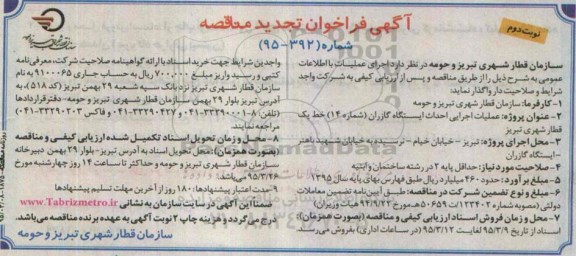 آگهی فراخوان تجدید مناقصه
شماره (۳۹۲-۹۵)
نوبت دوم
سازمان قطار شهری تبریز و حومه در نظر دارد اجرای عملیات با اطلاعات
عمومی به شرح ذیل را از طریق مناقصه و پس از ارزیابی کیفی به شرکت واجد
شرایط و صلاحیت دار واگذار نماید:
۱- کارفرما: سازمان قطار شهری تبریز و حومه
۲- عنوان پروژه: عملیات اجرایی احداث ایستگاه گازران (شماره ۱۴) خط یک
قطار شهری تبریز
۳- محل اجرای پروژه: تبریز - خیابان خیام - نرسیده به خیابان شهید باهنر
- ایستگاه گازران
۴- صلاحیت مورد نیاز: حداقل پایه ۲ در رشته ساختمان و ابنیه
۵- مبلغ برآورد: حدود ۴۶۰ میلیارد ریال طبق فهارس بهای پایه سال ۱۳۹۵
۶- مبلغ و نوع تضمین شرکت در مناقصه: طبق آیین نامه تضمین معاملات
دولتی (مصوبه شماره ۱۲۳۴۰۲/ت۵۰۶۵۹هـ مورخ ۹۴/۹/۲۲ هیات وزیران)
۷- محل و زمان فروش اسناد ارزیابی کیفی و مناقصه (بصورت همزمان):
اسناد از تاریخ ۹۵/۳/۹ لغایت ۹۵/۳/۱۲ (در ساعات اداری) بفروش می‌رسد
واجدین شرایط جهت خرید اسناد با ارائه گواهینامه صلاحیت شرکت، معرفی نامه
کتبی و رسید واریز مبلغ ۷۰۰،۰۰۰ ریال به حساب جاری ۹۱۰۰۰۶۵ به نام
سازمان قطار شهری تبریز نزد بانک سپه شعبه ۲۹ بهمن تبریز (کد ۵۱۸)، به
آدرس تبریز بلوار ۲۹ بهمن سازمان قطار شهری تبریز و حومه - دفتر قراردادها
(تلفن: ۸-۳۳۲۹۰۰۰۱-۰۴۱ و ۳۳۲۹۰۴۲۷-۰۴۱ و فاکس: ۳۳۲۹۰۲۰۳-۰۴۱)
مراجعه نمایند.
۸- محل و زمان تحویل اسناد تکمیل شده ارزیابی کیفی و مناقصه
(بصورت همزمان): محل تحویل اسناد به آدرس تبریز - بلوار ۲۹ بهمن دبیرخانه
سازمان قطار شهری تبریز و حومه و حداکثر تا ساعت ۱۴ روز چهارشنبه مورخ
۹۵/۳/۲۶ می‌باشد.
۹- مدت اعتبار پیشنهادها: ۱۸۰ روز از آخرین مهلت تسلیم پیشنهادها
ضمنا این آگهی در سایت سازمان به نشانی www.Tabrizmetro.ir
درج می‌گردد و هزینه چاپ ۲ نوبت آگهی به عهده برنده مناقصه می‌باشد.
سازمان قطار شهری تبریز و حومه